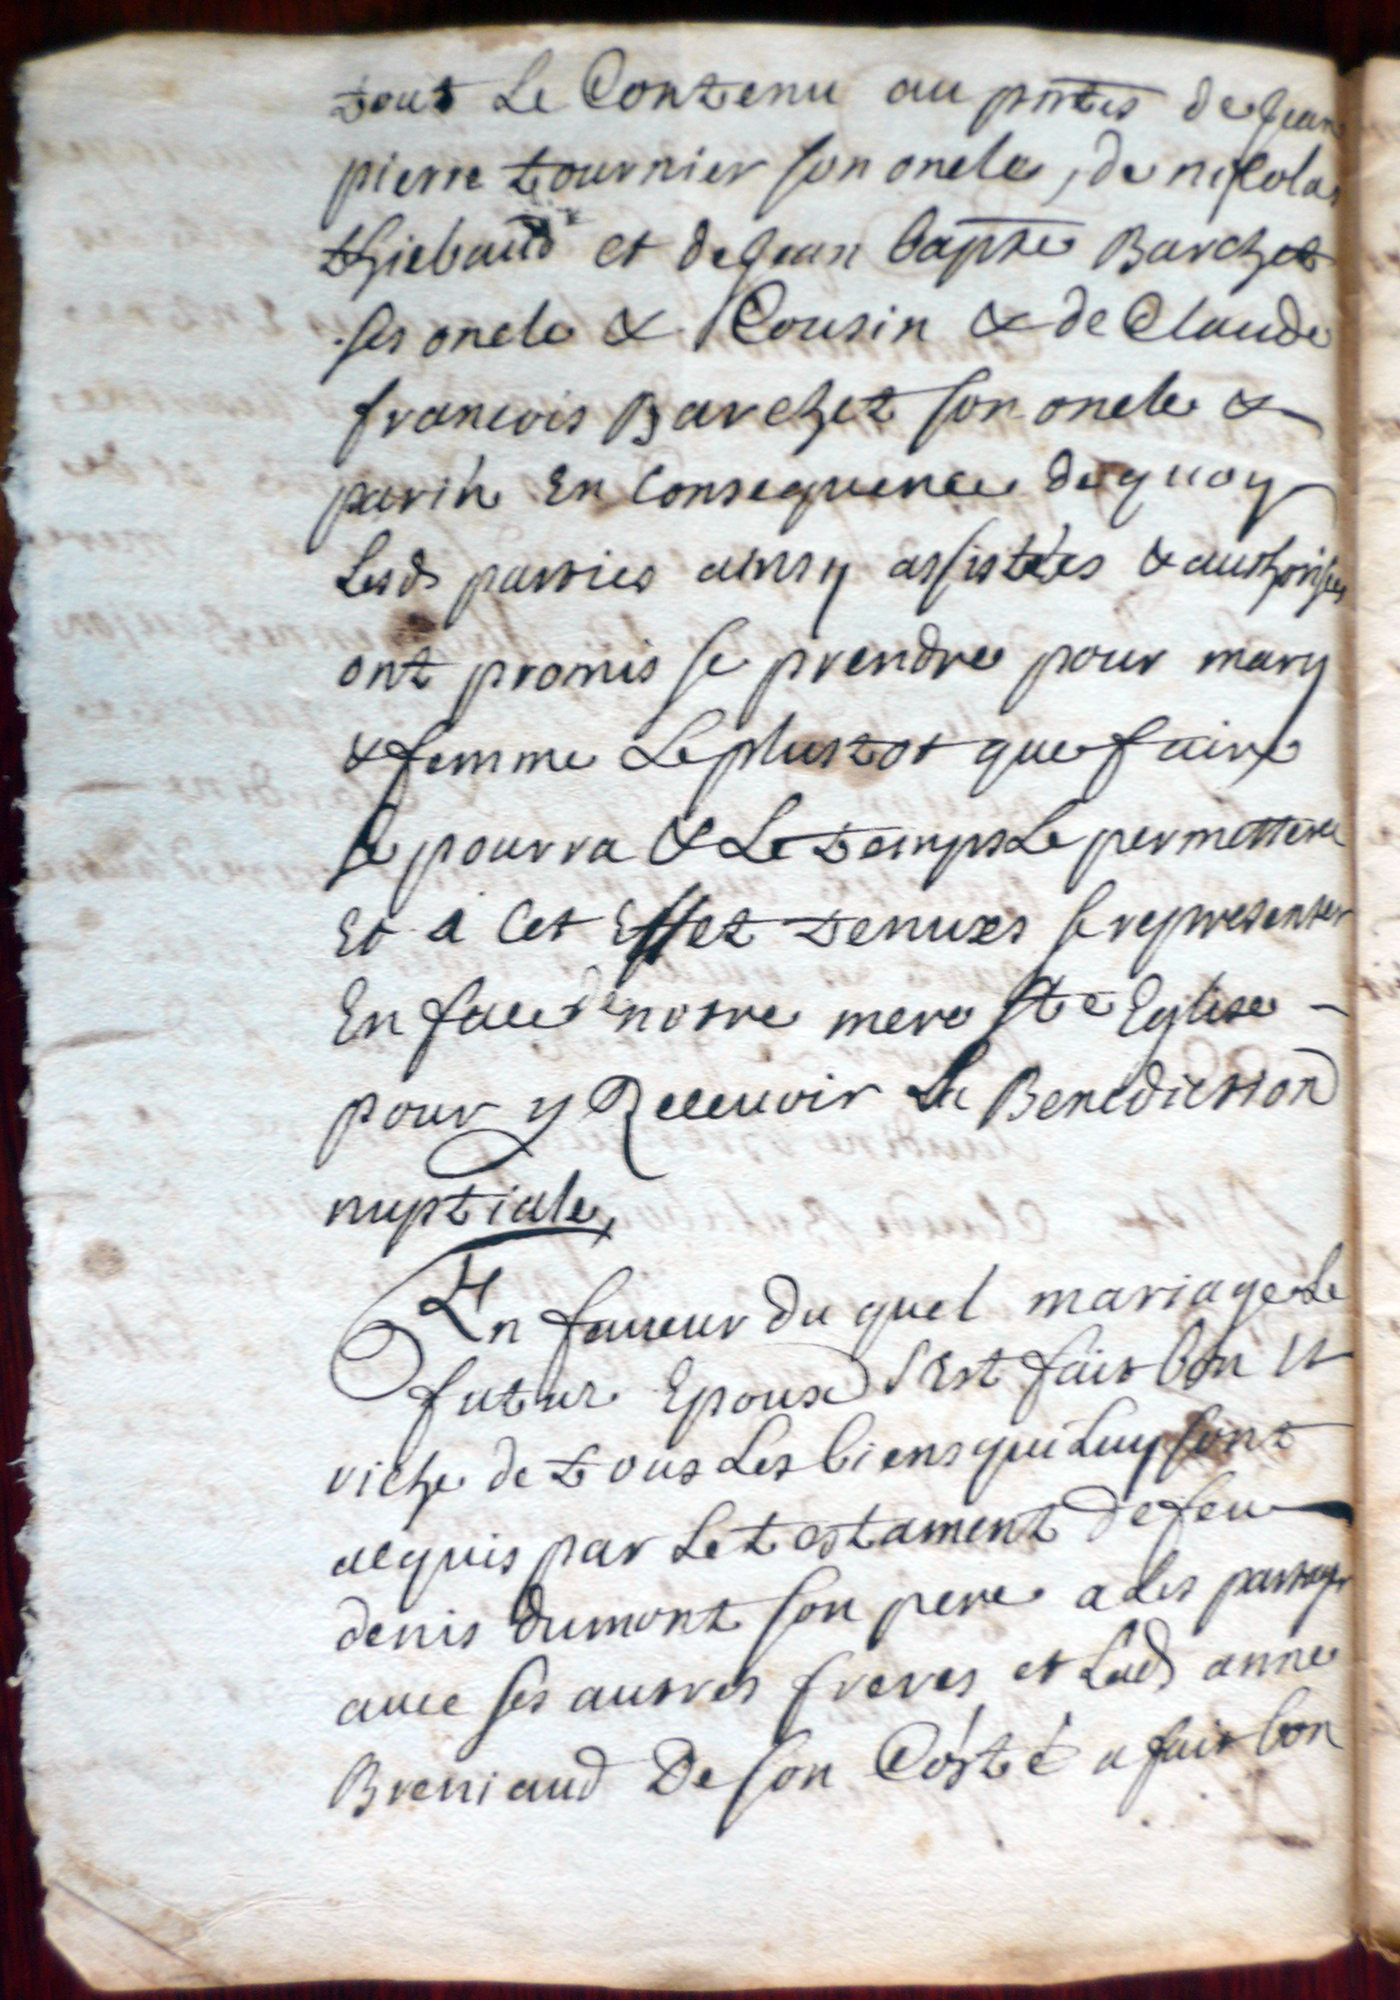 tout Le Contenu au pntes de Jean
pierre tournier son oncle, de nicolas
thiebaud et de Jean bapste Barchet
ses oncle & Cousin & de Claude
francois Barchet son oncle &
parin En Consequence de quoy
Lesd parties ainsy assistées & authorisées
ont promis se prendre pour mary
& femme Le plustot que faire
se pourra & Le temps Le permettera
Et a Cet Effet tenues se representer
En face de notre mere Ste Eglise
pour y Receuoir La Benediction
nuptiale,
En faueur du quel mariage Le
futur Epoux s'Est fait bon et
riche de tous Les biens qui Luy sont
acquis par Le testament de feu
denis dumont son pere a Les partager
auec ses autres freres et Lad anne
Breniaud De son Costé a fait bon